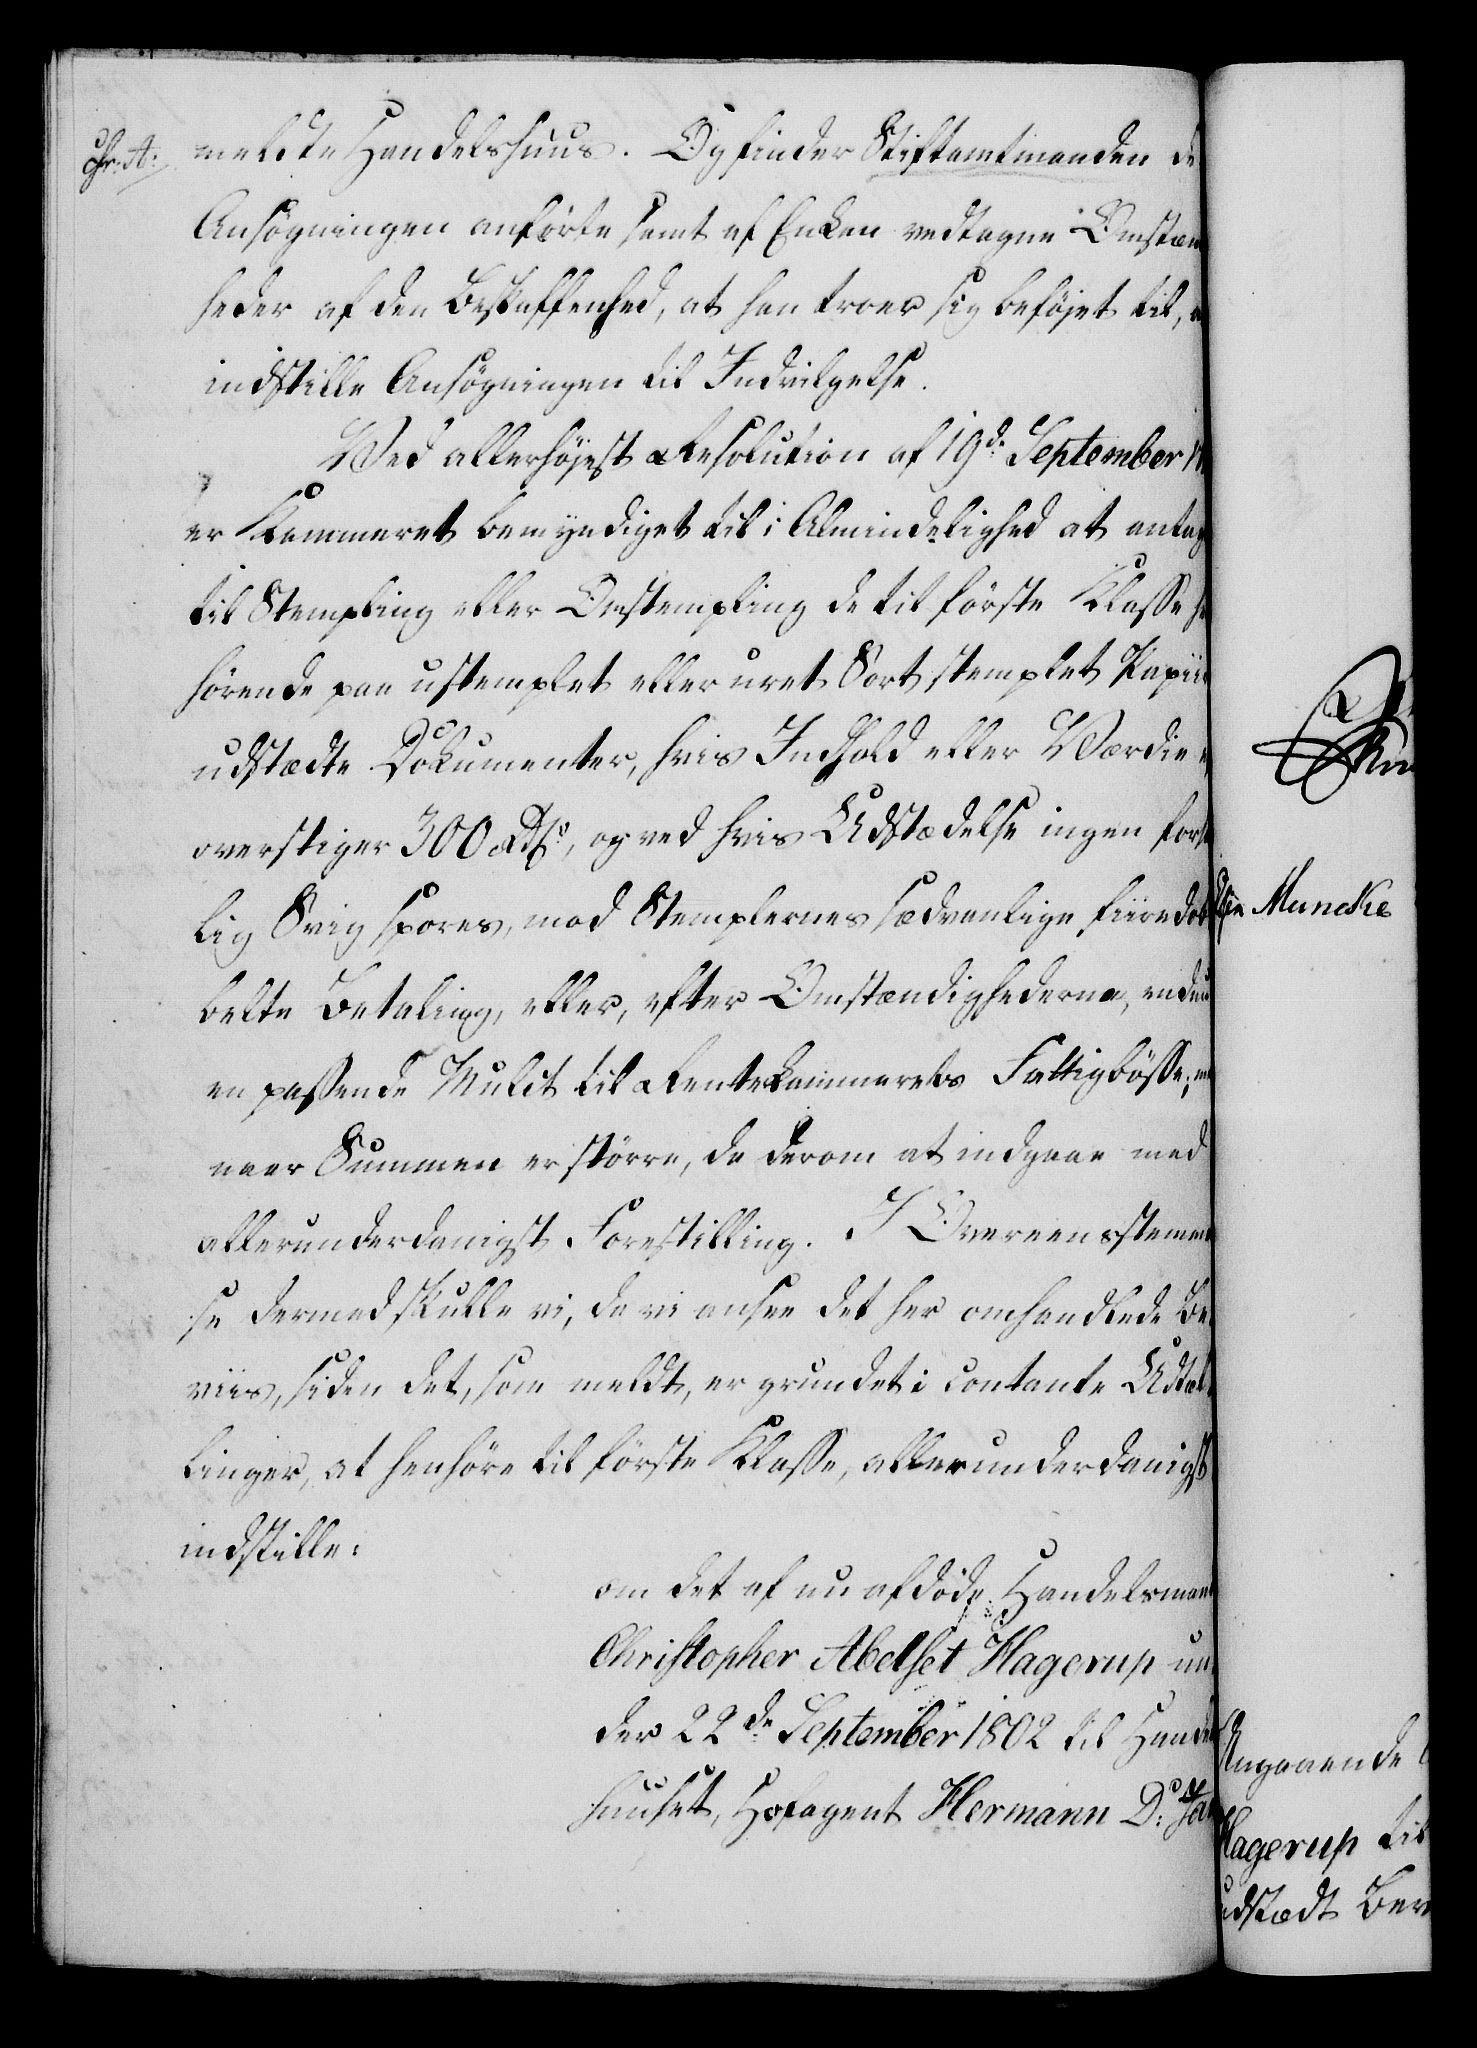 cfr. A:
meldte Handelshuus. Og finder Stiftamtmanden de
Ansøgningen anførte samt af Enken vedtagne Omstæn
heder af den Beskaffenhed, at han troer sig beføjet til, a
indstille Ansøgningen til Indvilgelse.
Ved allerhøjest Resolution af 19de September
er Kammeret bemyndiget til i Almindelighed at antag
til Stempling eller Omstempling de til første Klasse he
hørende paa ustemplet eller uret Sort stemplet Papiir
udstædte Dokumenter, hvis Indhold eller Værdie
overstiger 300 Rdr, og ved hvis Udstædelse ingen forsæ
lig Svig spores, mod Stemplernes sædvanlige fiiredob
belte Betaling, eller, efter Omstændighederne, endnu
en passende Mulct til Rentekammerets Fattigbøsse; m
naar Summen er større, da derom at indgaae med
allerunderdanigst Forestilling. I Overeensstemm
se dermed skulle vi, da vi ansee det her omhandlede Be
viis, siden det, som meldt, er grundet i contante Udtæl
linger, at henhøre til første Klasse, allerunderdanigst
indstille:
om det af nu afdøde Handelsmand
Christopher Abelset Hagerup un
der 22de September 1802 til Handels
huuset, Hofagent Hermann D: Jan
Muncke
Angaaende
Hagerup til
udstædt Bev